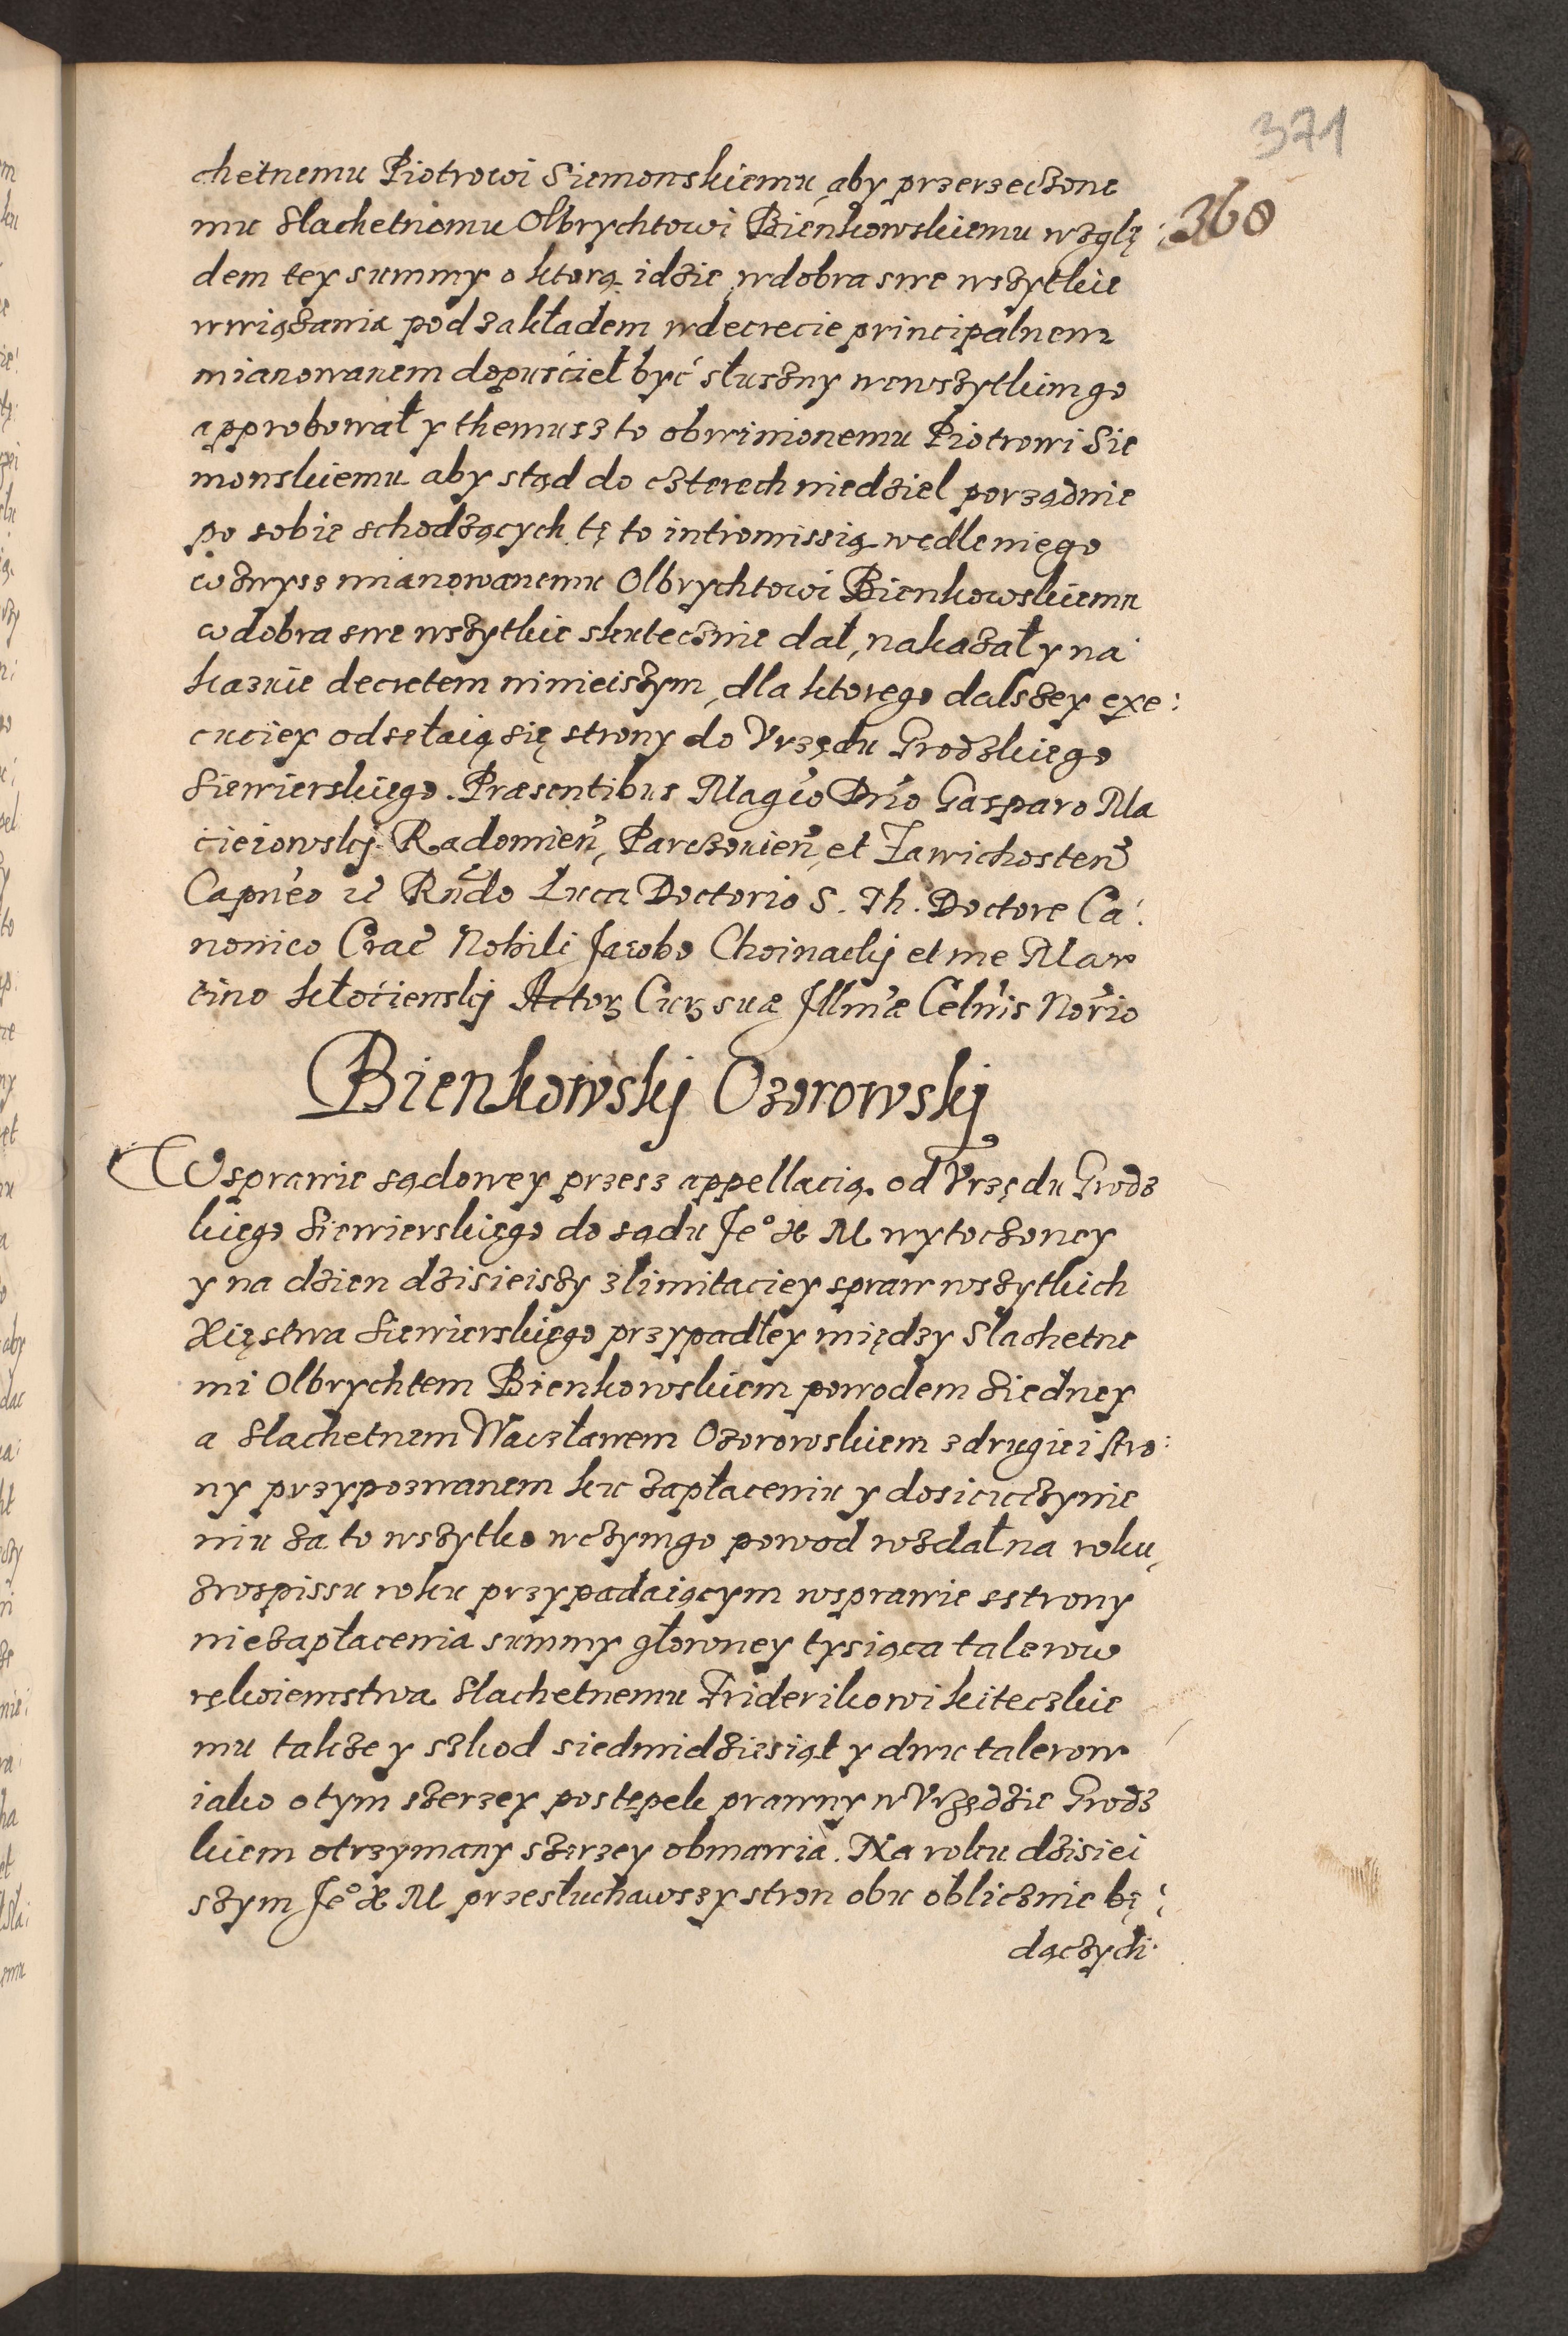 371
360
chetnemu Piotrowi Siemonskiemu, aby przerzeczone
mu Slachetnemu Olbrychtowi Bienkowskiemu wzglę
dem tey summy o ktorą idzie, w dobra swe wszytkie
wwiązania pod zakładem w decrecie principalnem
mianowanem dopuścieł być słuszny wewszytkim go
approbował y themusz to obwinionemu Piotrowi Sie
monskiemu aby stąd do czterech niedziel porządnie
po sobie schodzących tę to intromissią wedle niego
wzwysz mianowanemu Olbrychtowi Bienkowskiemu
w dobra swe wszytkie skutecznie dał, nakazał y na
kazuie decretem ninieiszym, dla ktorego dalszey exe:
cuciey odsełaią się strony do Vrzędu Grodzkiego
Siewierskiego. Præsentibus Magco Dno Gasparo Ma
cieiowskij Radomien, Parczouien, et Zawichosten
Capneo ac Rndo Luca Doctorio S. Th. Doctore Ca:
nonico Crac Nobili Jacobo Choinackij et me Mar
tino Kłocienskij Actor Cur suæ Jllmæ Celnis Norio
Bienkowskij Ozorowskij
W sprawie sądowey przesz appellacią od Vrzędu Grodz
kiego Siewierskiego do sądu Je° X M wytoczoney
y na dzien dzisieiszy z limitaciey spraw wszytkich
Xięstwa Siewierskiego przypadłey między Slachetne
mi Olbrychtem Bienkowskiem powodem ziedney
a Slachetnem Waczławem Ozorowskiem z drugiei stro:
ny przypozwanem ku zapłaceniu y dosicuczynie
niu za to wszytko w czym go powod wzdał na roku,
z rospissu roku przypadaiącym w sprawie s strony
niezapłacenia summy głowney tysiąca talerow
rękoiemstwa Slachetnemu Friderikowi kiteczkie
mu takze y szkod siedmidziesiąt y dwu talerow
iako o tym szerzey postępek prawny w Vrzędzie Grodz
kiem otrzymany szerzey obmawia. Na roku dzisiei
szym Je° X M przesłuchawszy stron obu oblicznie bę:
dączych